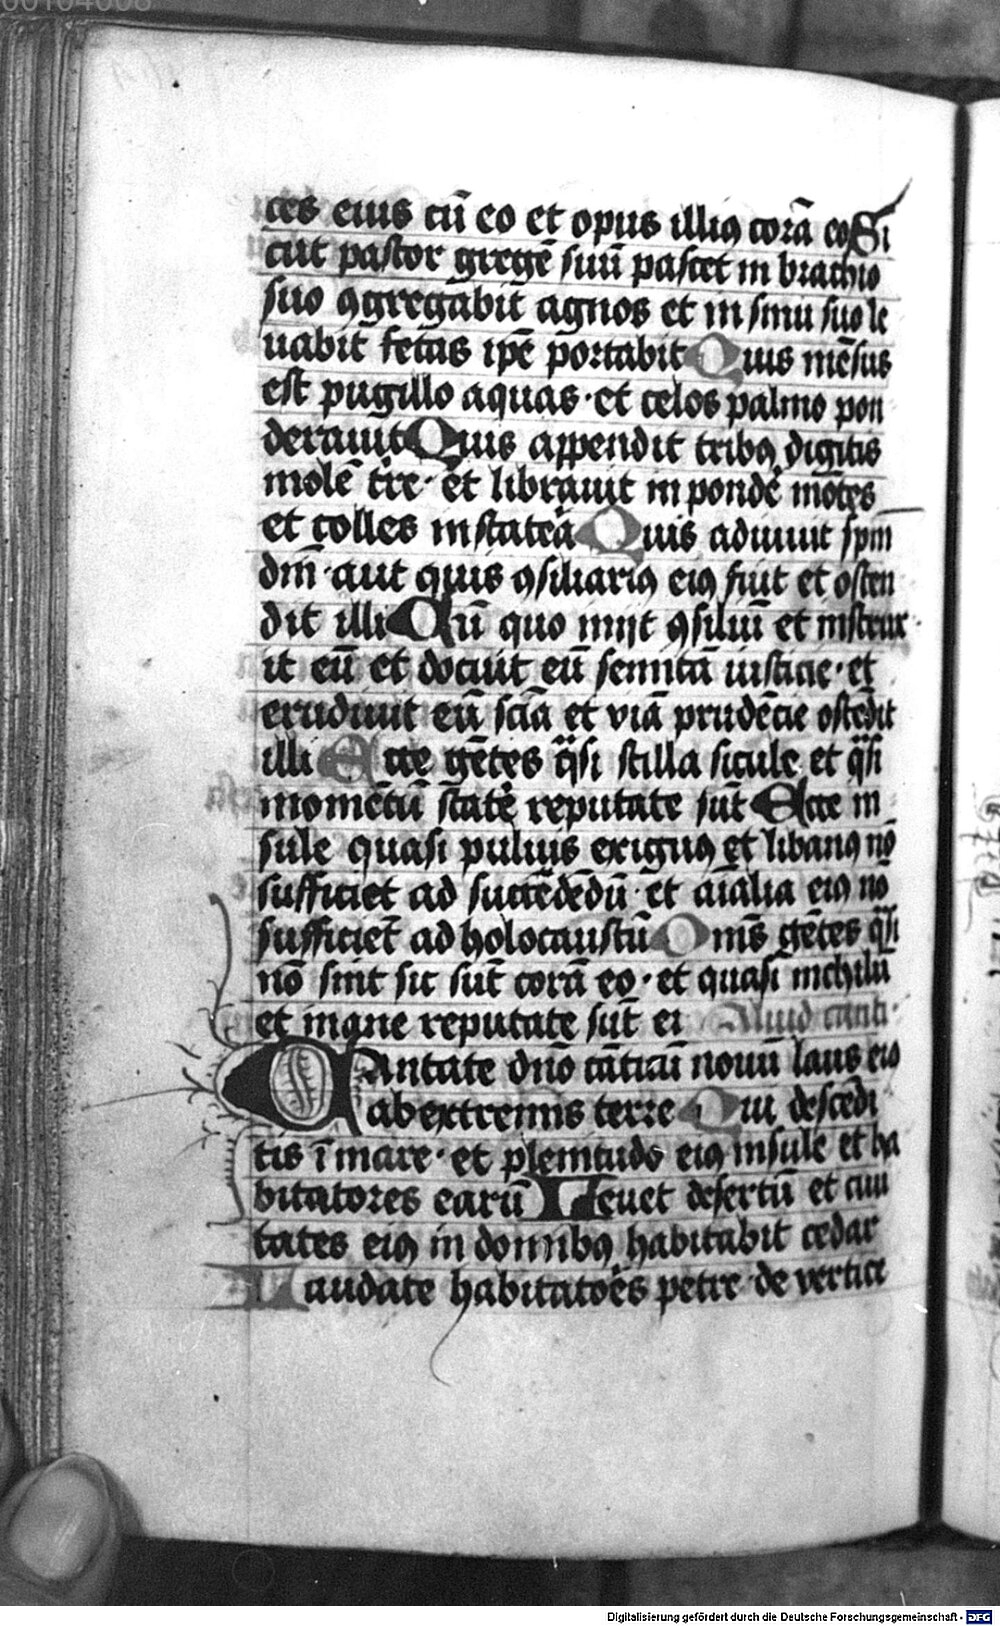 00104008
ces eius cū eo et opus illiꝯ corā eo Si
cut pastor gregē suū pascet in brachio
suo ꝯgregabit agnos et in sinu suo le
uabit fetas ipē portabit Quis mēsus
est pugillo aquas · et celos palmo pon
derauit Quis appendit tribꝯ digitis
molē tr̄e · et librauit in pondē mōtes
et colles in statēa Quis adiuuit sp̄m
dn̄i · aut quis ꝯsiliariꝯ eiꝯ fuit et osten
dit illi Cū quo inijt ꝯsiliū et instrux
it eū et docuit eū semitā iusticie · et
erudiuit eū sciā et viā prudēcie ostēdit
illi Ecce gētes qͣsi stilla sicule et qͣsi
momētū statē reputate sūt Ecce in
sule quasi puluis exiguꝯ et libanꝯ nō
sufficiet ad succēdēdū · et aīalia eiꝯ nō
sufficiet ad holocaustū Om̄s gētes qͣsi
nō sint sic sūt corā eo · et quasi nichilū
et inane reputate sūt ei Aliud canti ·
Cantate dn̄o cāticū nouū laus eiꝯ
ab extremis terre Qui descēdi
tis ī mare · et plenitudo eiꝯ insule et ha
bitatores earū Leuet desertū et ciui
tates eiꝯ in domibꝯ habitabit cedar
Laudate habitatōes petre · de vertice
Digitalisierung gefördert durch die Deutsche Forschungsgemeinschaft - DFG